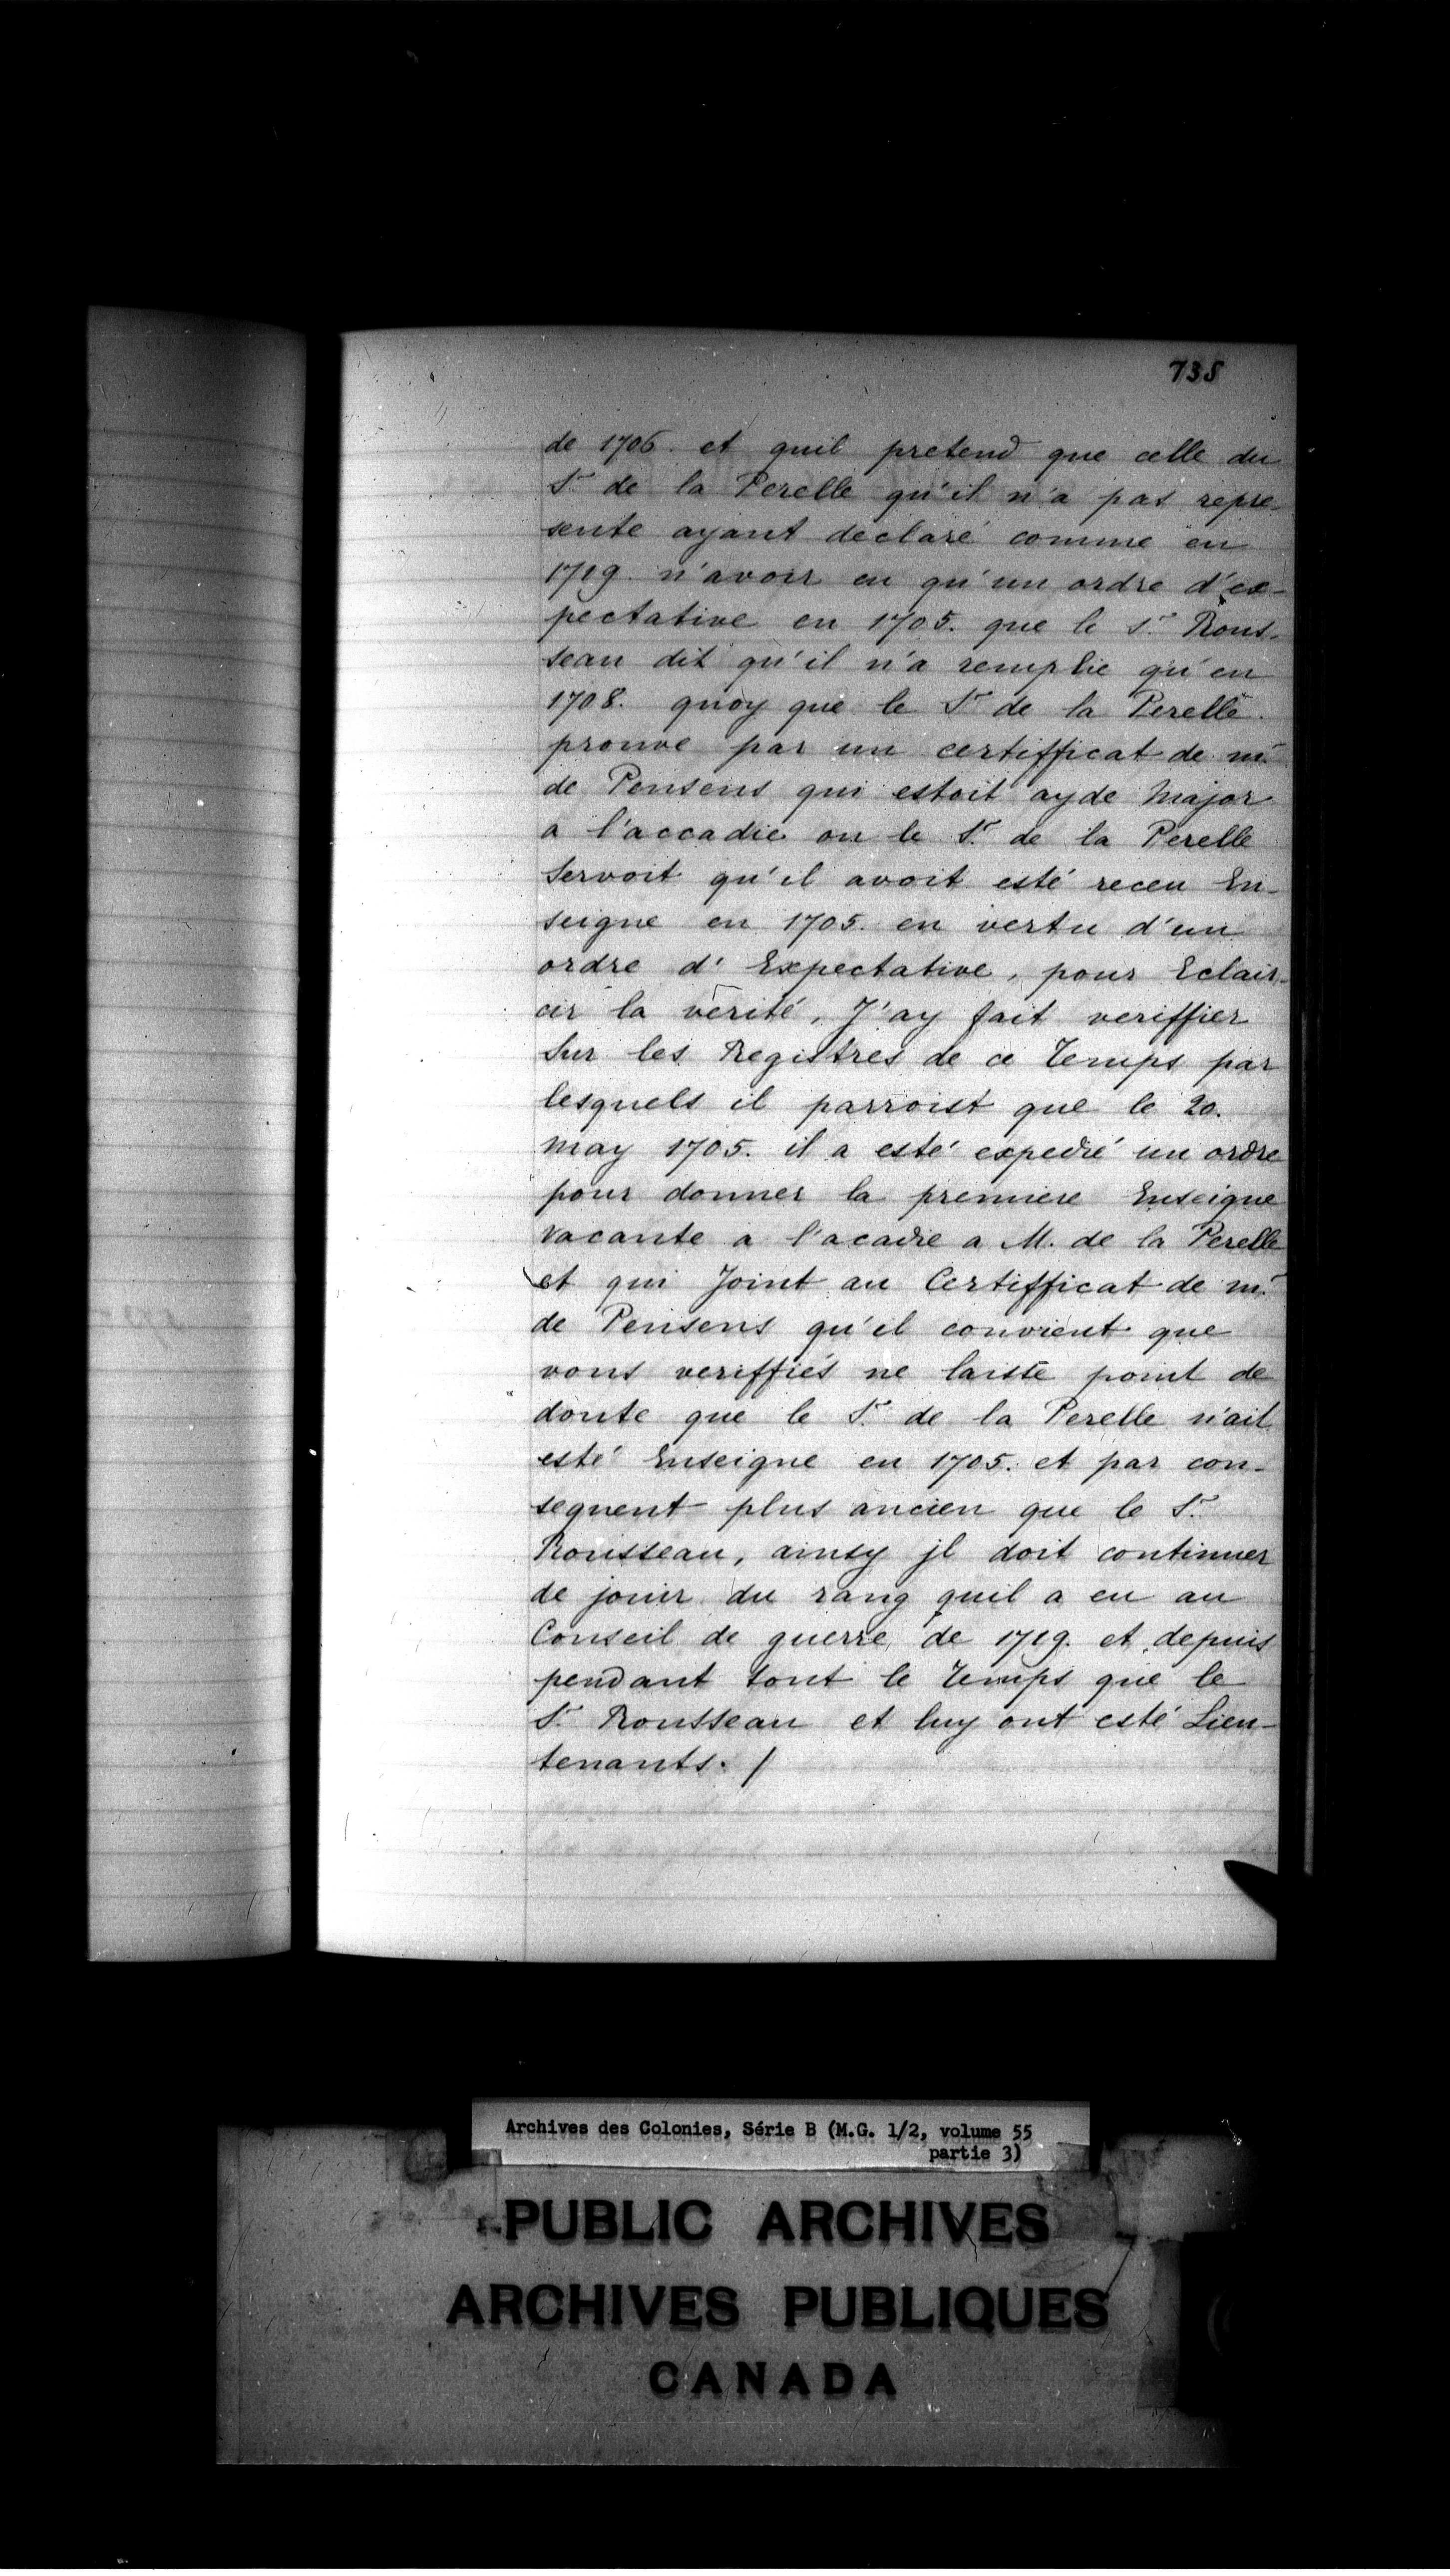 735
de 1706. et quil pretend que celle du
Sr de la Perelle qu'il n'a pas repre-
sente ayant declaré comme en
1719. n'avoir eu qu'un ordre d'ex-
pectative en 1705. que le Sr. Rous-
seau dit qu'il n'a remplie qu'en
1708. quoy que le Sr de la Perelle
prouve par un certifficat de mr.
de Pensens qui estoit ayde Major
a l'accadie ou le Sr. de la Perelle
Servoit qu'il avoit esté receu En-
seigne en 1705. en vertu d'un
ordre d'Expectative, pour Eclair-
cir la verité, J'ay fait veriffier
Sur les Registres de ce Temps par
lesquels il parroist que le 20.
may 1705. il a esté expedié un ordre
pour donner la premiere Enseigne
Vacante a l'acadie a M. de la Perelle
et qui Joint au Certifficat de mr.
de Pensens qu'il convient que
vous veriffiés ne laisse point de
doute que le Sr. de la Perelle n'ait
esté Enseigne en 1705. et par con-
sequent plus ancien que le Sr.
Rousseau, ainsy jl doit continuer
de jouir du rang quil a eu au
Conseil de guerre de 1719. et depuis
pendant tout le temps que le
Sr. Rousseau et luy ont esté Lieu-
tenants. /
Archives des Colonies, Série B (M.G. 1/2, volume 55
partie 3)
PUBLIC ARCHIVES
ARCHIVES PUBLIQUES
CANADA